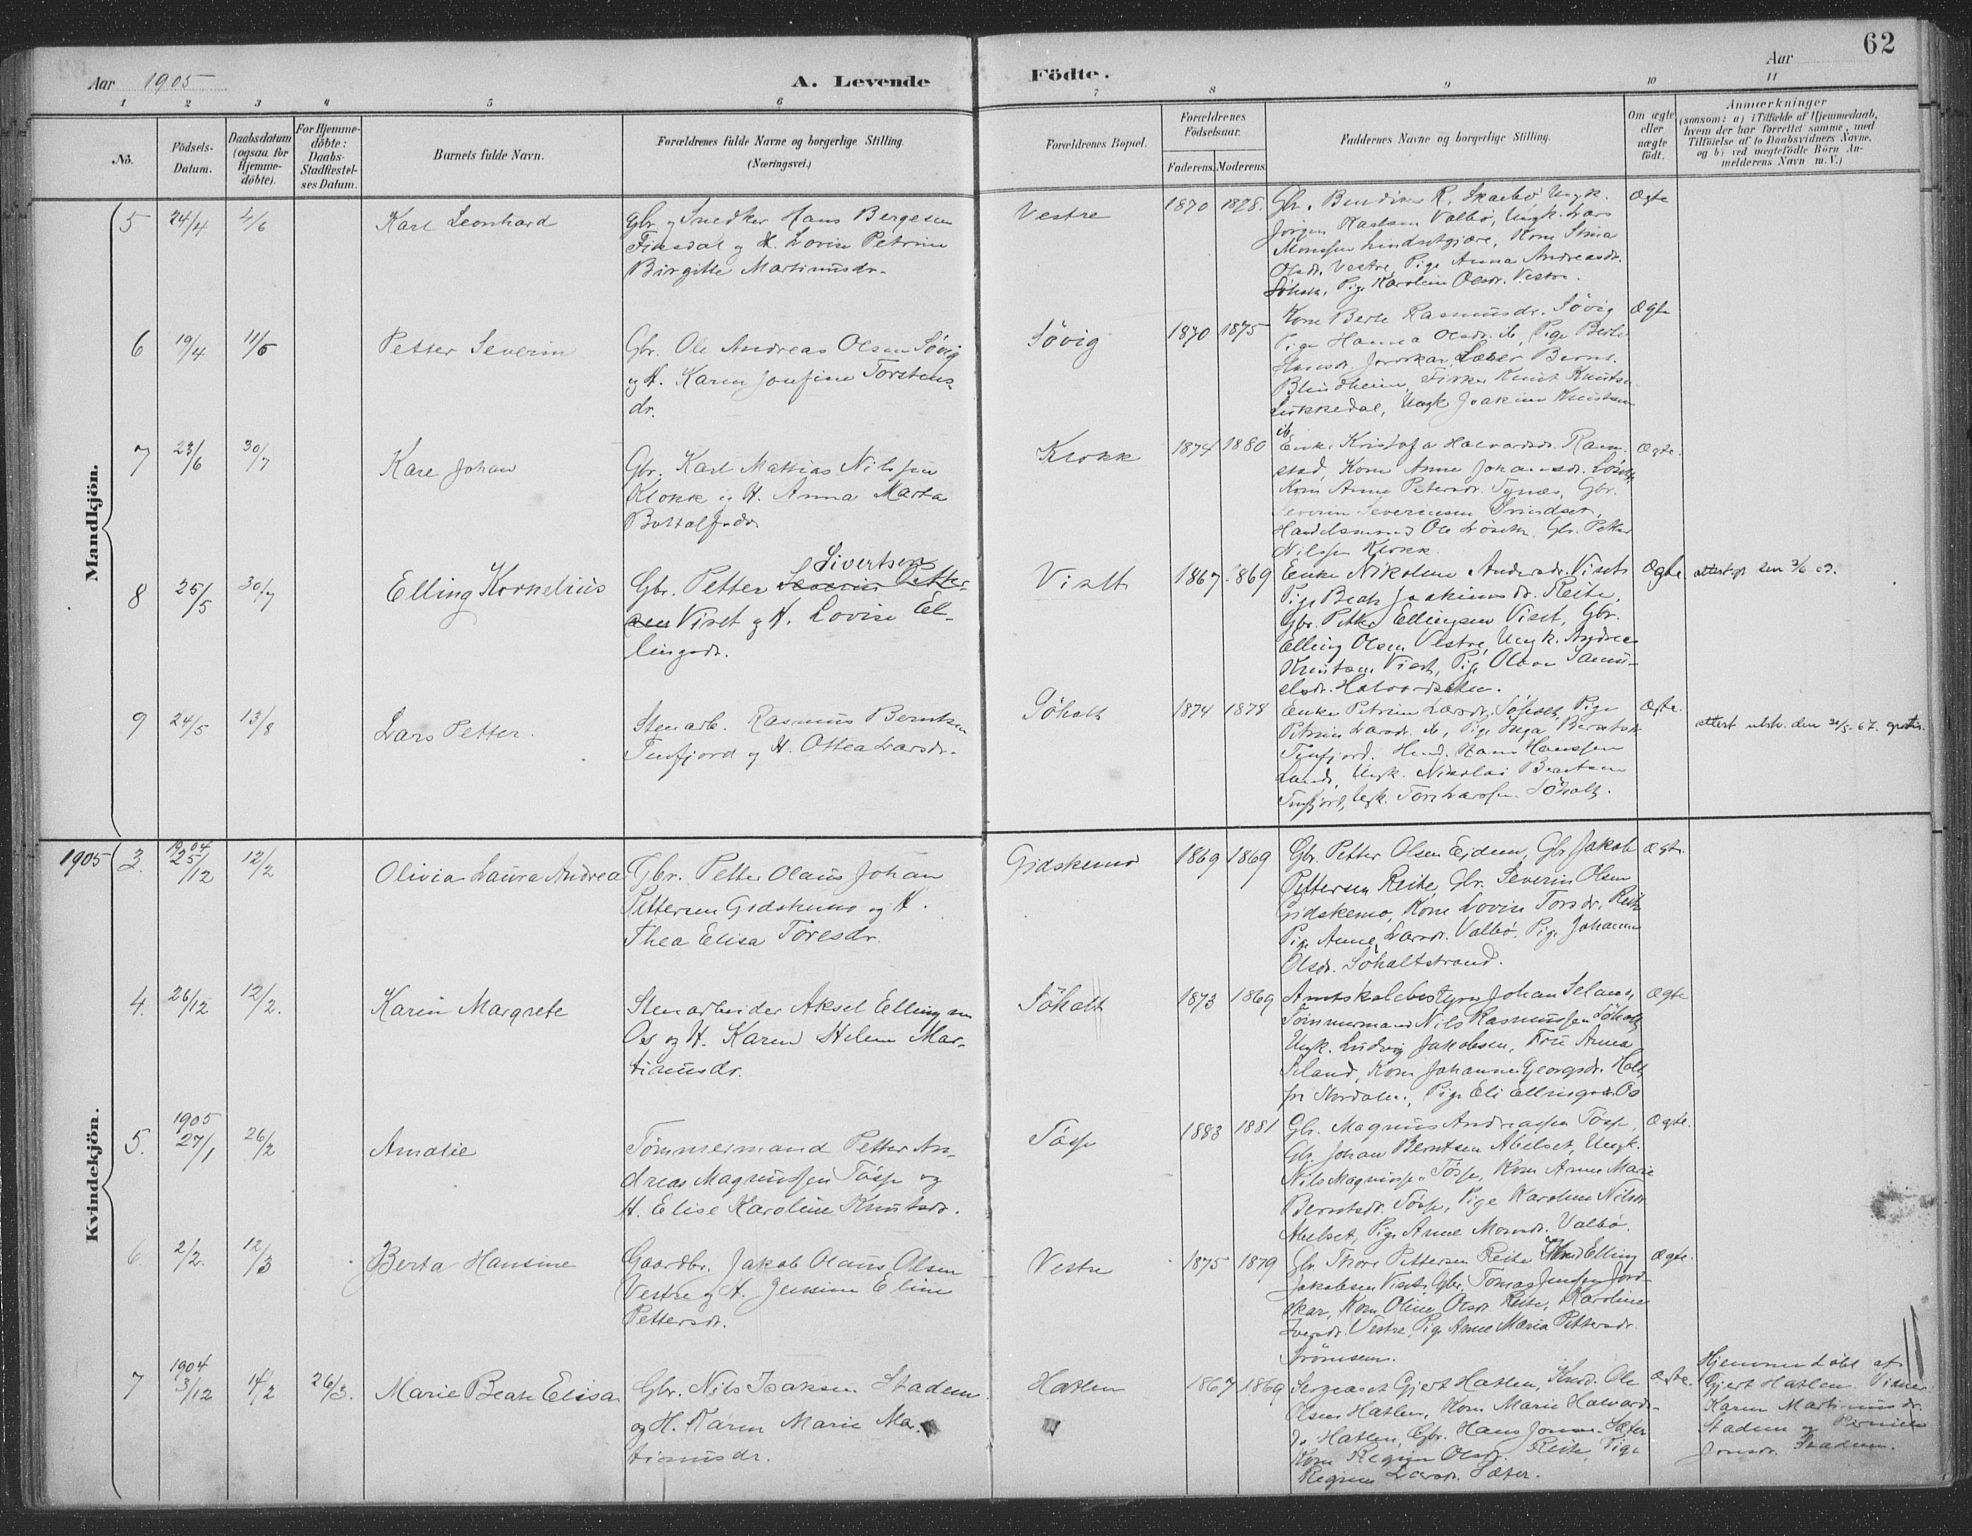 62
Aar 1905
A. Levende Födte.
Aar
1 2 3 4 5 6 7 8 9 10 11
No.
Födsels-
Datum.
Daabsdatum
(ogsaa for
Hjemme-
döbte).
For Hjemme-
döbte:
Daabs-
Stadfæstel-
ses Datum.
Barnets fulde Navn.
Forældrenes fulde Navne og borgerlige Stilling.
(Næringsvei.)
Forældrenes Bopæl.
Forældrenes
Födselsaar.
Faderens. Moderens.
Faddernes Navne og borgerlige Stilling.
Om ægte
eller
uægte
födt.
Anmærkninger
(saasom: a) i Tilfælde af Hjemmedaab,
hvem der har forrettet samme, med
Tilföielse af to Daabsvidners Navne,
og b) ved uægtefödte Börn An-
melderens Navn m. V.)
Mandkjön.
5 24/4 4/6 Karl Leonhard
Gbr. og Snedker Hans Bergesen
Fiksdal og H. Lovise Petrine
Birgitte Martinusdr.
Vestre 1870 1878.
Gbr. Bendik R. Skarbö, Ungk.
Jörgen Karlsen Valbö, Ungk. Lars
Monsen Lindsetgjære, Kone Stina
Olsdr. Vestre, Pige Anna Andreasdr.
Söholt, Pige Karoline Olsdr. Vestre.
Ægte
6 19/4 11/6 Petter Severin
Gbr. Ole Andreas Olsen Søvig
og H. Karen Josefine Torstens-
dr.
Søvig 1870 1875
Kone Berte Rasmusdr. Søvig
Pige Hanna Olsdr. ib, Pige Berte
Hansdr. Jorskar, Læter Bernt
Blindheim, Fisker Knut Knutsen
Lukkedal, Ungk Joakim Knutsen
ib.
Ægte
7 23/6 30/7 Kare Johan
Gbr. Karl Mattias Nilssen
Klokk og H. Anna Marta
Bottolfsdr.
Klokk 1874 1880
Enke Kristofa Halvardsdr. Ram-
stad, Kone Anne Johansdr. Löseth,
Kone Anne Petersdr. Tynes, Gbr.
Severin Severinsen Grindset,
Handelsmand Ole Löseth, Gbr. Petter
Nilssen Klokk.
Ægte.
8 25/5 30/7 Elling Kornelius
Sivertsen
Gbr. Petter Severin Petter-
sen Viset og H. Lovise El-
lingsdr.
Viset 1867 1869
Enke Nikoline Andersdr. Viset
Pige Beate Joakimsdr. Reite,
Gbr. Petter Ellingsen Viset, Gbr.
Elling Olsen Vestre, Ungk. Andreas
Knutsen Viset, Pige Olave Samu-
elsdr. Halvardsetre.
Ægte.
9 24/5 13/8 Lars Petter.
Stenarb. Rasmus Berntsen
Tenfjord og H. Ottea Larsdr.
Söholt 1874 1878
Enke Petrine Larsdr. Söholt, Pige
Petrine Larsdr. ib, Pige Inga Berntsdr.
Tenfjord. Hmd. Hans Hanssen
Lande, Ungk. Nikolai Berntsen
Tenfjord, Ungk. Tore Larssen Söholt.
Ægte.
attest utst. den 20/5-67. gratis.
Kvindekjön.
1905 3. 1904 25/12 12/2 Olivia Laura Andrea
Gbr. Petter Olaus Johan
Pettersen Gidskemo og H.
Thea Elisa Toresdr.
Gidskemo 1869 1869
Gbr. Petter Olsen Ejdem, Gbr Jakob
Pettersen Reite, Gbr. Severin Olsen
Gidskemo, Kone Lovise Torsdr. Reite
Pige Anne Larsdr. Valbö. Pige Johanne
Olsdr. Söholtstrand.
Ægte.
4. 26/12 12/2. Karen Margrete
Stenarbeider Aksel Ellingsen
Os og H. Karen Helene Mar-
tinusdr.
Söholt 1873 1869
Amtskolebestyrer Johan Seland,
Tömmermand Nils Rasmussen Söholt,
Ungk. Ludvig Jakobsen, Fru Anna
Seland, Kone Johanne Georgsdr. Holt
fra Nordalen, Pige Eli Ellingsdr. Os
Ægte
5. 1905 27/1 26/2 Amalie
Tömmermand Petter An-
dreas Magnussen Tösse og
H. Elise Karoline Knutsdr.
Tösse 1883 1881
Gbr. Magnus Andreassen Tösse,
Gbr. Johan Berntsen Abelset, Ungk.
Nils Magnussen Tösse, Kone Anne Marie
Berntsdr. Tösse, Pige Karoline Nilsdr
Abelset, Pige Anne Monsdr. Valbö.
Ægte.
6 2/2. 12/3 Berta Hansine
Gaardbr. Jakob Olaus Olsen
Vestre og H. Jensine Eline
Pettersdr.
Vestre 1875 1879
Gbr. Thore Pettersen Reite, Elling
Jakobsen Viset, Gbr. Tomas Jensen Jord-
skar, Kone Oline Olsdr. Reite, Karoline
Iversdr. Vestre, Pige Anne Maria Pettersdr.
Strömsem.
Ægte.
7 1904 3/12 14/2 26/3. Marie Beate Elisa
Gbr. Nils Isaksen Stadem
og H. Karen Marie Mar-
tinusdr.
Hatlen 1867 1869
Sergeant Gjert Hatlen, Kmd. Ole
Olsen Hatlen, Kone Marie Halvards-
dr. Hatlen, Gbr. Hans Jonsen Sæter
Kone Regine Olsdr. Reite, Pige
Regine Larsdr. Sæter.
Ægte.
Hjemmedöbt af
Gjert Hatlen. Vidner
Karen Martinusdr.
Stadem og Pernille
Jonsdr. Stadem.